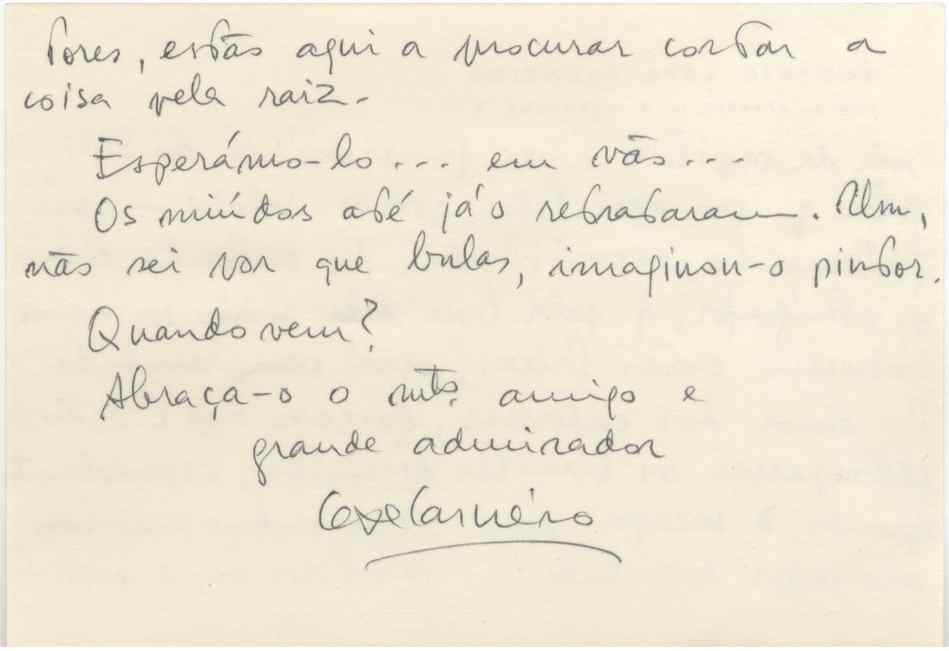 tores, estão aqui a procurar cortar a
coisa pela raiz.
Esperámo-lo... em vão...
Os miúdos até já o retrataram. Um,
não sei por que bulas, imaginou-o pintor.
Quando vem?
Abraça-o o mtº. amigo e
grande admirador